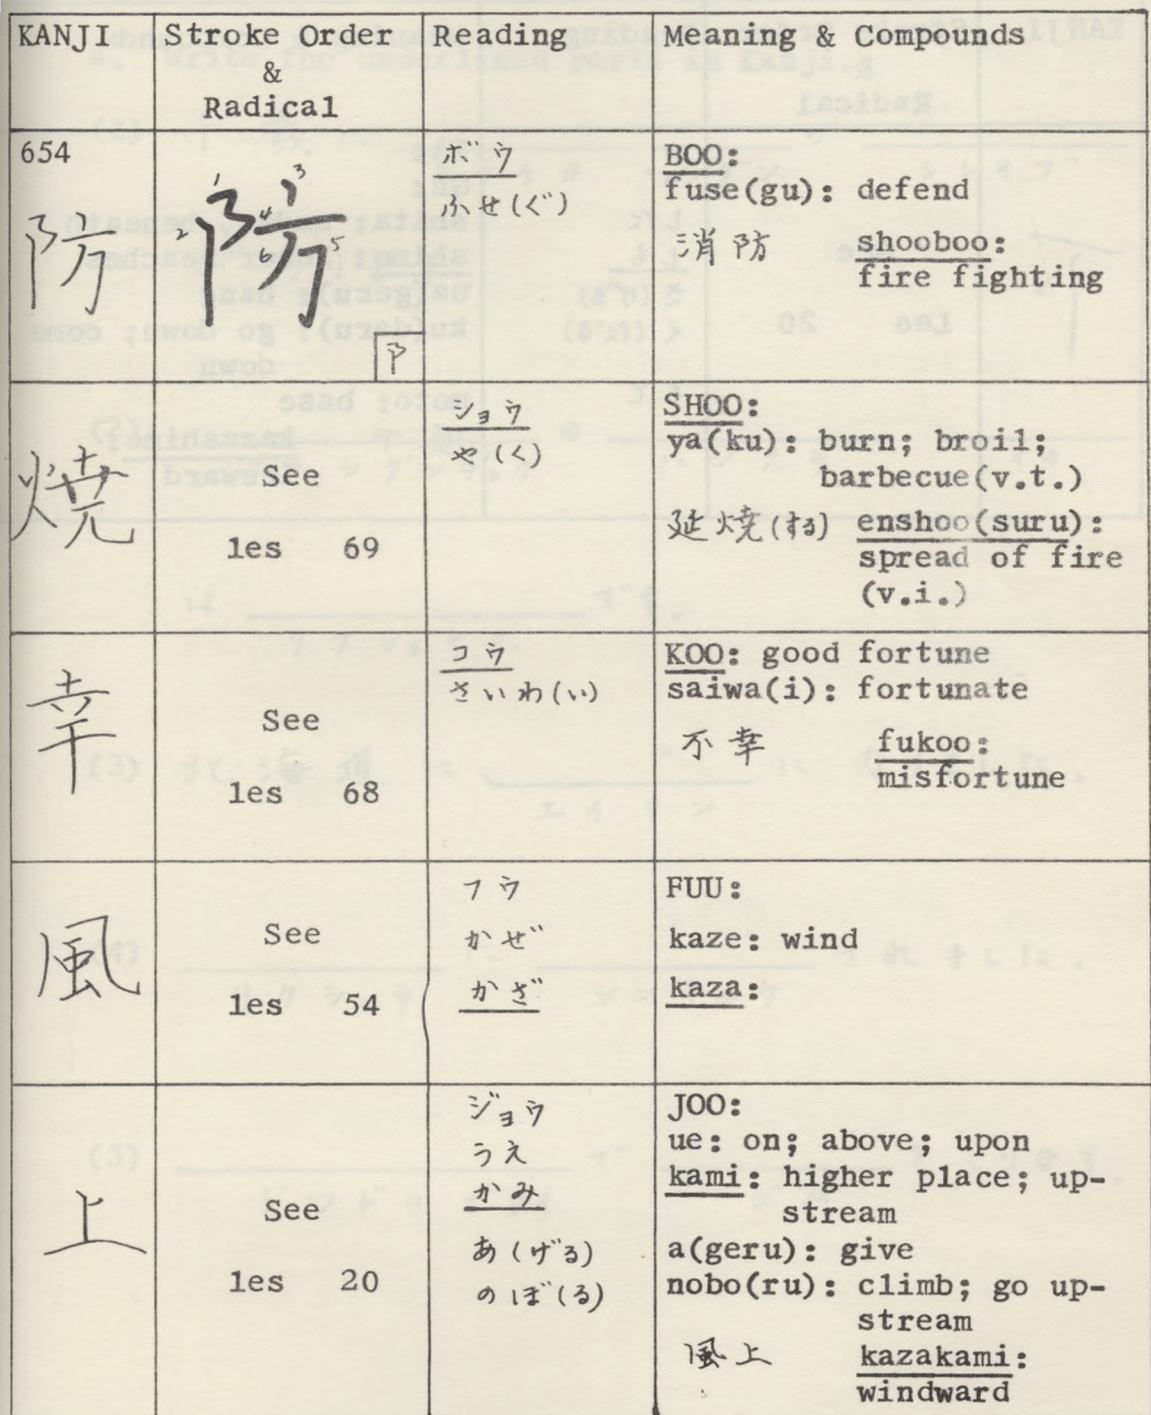 KANJI Stroke Order & Radical Reading Meaning & Compounds
654
防
1 2 3 4 5 6
阝
ボウ
ふせ(ぐ)
BOO:
fuse(gu): defend
消防 shooboo:
fire fighting
焼
See
les 69
ショウ
や(く)
SHOO:
ya(ku): burn; broil;
barbecue(v.t.)
延焼(する) enshoo(suru):
spread of fire
(v.i.)
幸
See
les 68
コウ
さいわ(い)
KOO: good fortune
saiwa(i): fortunate
不幸 fukoo:
misfortune
風
See
les 54
フウ
かぜ
かざ
FUU:
kaze: wind
kaza:
上
See
les 20
ジョウ
うえ
かみ
あ(げる)
のぼ(る)
JOO:
ue: on; above; upon
kami: higher place; up-
stream
a(geru): give
nobo(ru): climb; go up-
stream
風上 kazakami:
windward